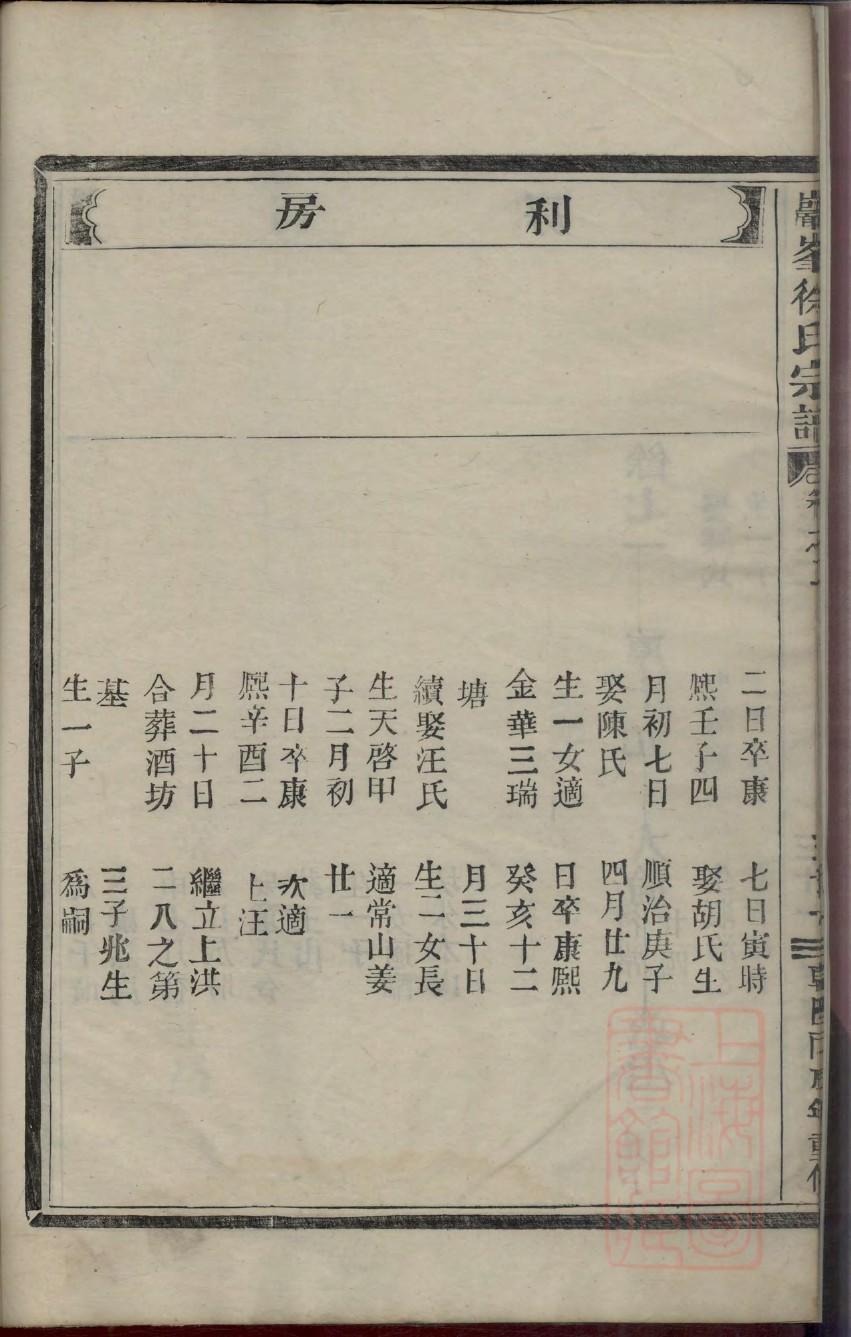 巖峯徐氏宗譜
利房
二日卒康
熙壬子四
月初七日
娶陳氏
生一女適
金華三瑞
塘
續娶汪氏
生天啓甲
子二月初
十日卒康
熙辛酉二
月二十日
合葬酒坊
墓
生一子
七日寅時
娶胡氏生
順治庚子
四月廿九
日卒康熙
癸亥十二
月三十日
生二女長
適常山姜
廿一
次適
上汪
繼立上洪
二八之第
三子兆生
爲嗣
上海圖
書館藏